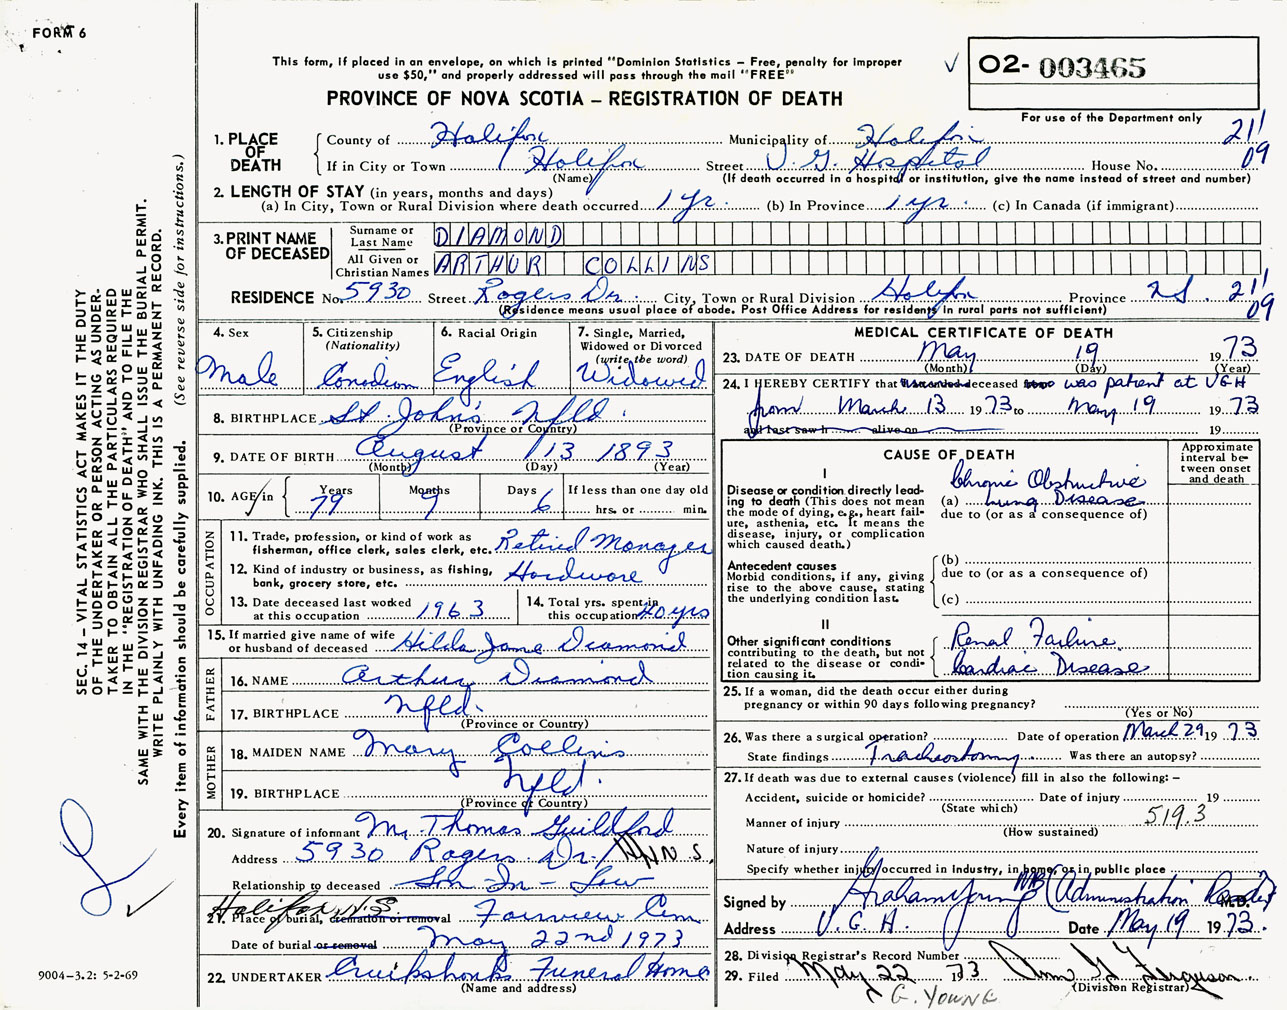 FORM 6
This form, if placed in an envelope, on which is printed "Dominion Statistics – Free, penalty for improper
use $50," and properly addressed will pass through the mail "FREE"
PROVINCE OF NOVA SCOTIA – REGISTRATION OF DEATH
✓ 02- 003465
For use of the Department only
1. PLACE OF DEATH
County of Halifax Municipality of Halifax 211
If in City or Town Halifax Street V. G. Hospital House No. 09
(Name) (If death occurred in a hospital or institution, give the name instead of street and number)
2. LENGTH OF STAY (in years, months and days)
(a) In City, Town or Rural Division where death occurred 1 yr. (b) In Province 1 yr. (c) In Canada (if immigrant)
3. PRINT NAME OF DECEASED
Surname or Last Name DIAMOND
All Given or Christian Names ARTHUR COLLINS
RESIDENCE No. 5930 Street Rogers Dr. City, Town or Rural Division Halifax Province N.S. 211
(Residence means usual place of abode. Post Office Address for residents in rural parts not sufficient) 09
4. Sex
Male
5. Citizenship
(Nationality)
Canadian
6. Racial Origin
English
7. Single, Married,
Widowed or Divorced
(write the word)
Widowed
8. BIRTHPLACE St. John's Nfld.
(Province or Country)
9. DATE OF BIRTH August 13 1893
(Month) (Day) (Year)
10. AGE in Years Months Days If less than one day old
79 9 6 hrs. or min.
OCCUPATION
11. Trade, profession, or kind of work as
fisherman, office clerk, sales clerk, etc. Retired Manager
12. Kind of industry or business, as fishing,
bank, grocery store, etc. Hardware
13. Date deceased last worked
at this occupation 1963
14. Total yrs. spent in
this occupation 40 yrs
15. If married give name of wife
or husband of deceased Hilda Jane Diamond
FATHER
16. NAME Arthur Diamond
17. BIRTHPLACE Nfld.
(Province or Country)
MOTHER
18. MAIDEN NAME Mary Collins
19. BIRTHPLACE Nfld.
(Province or Country)
20. Signature of informant Mr. Thomas Guildford
Address 5930 Rogers Dr.
Relationship to deceased Son-In-Law
Halifax, N.S.
21. Place of burial, cremation or removal Fairview Cem
Date of burial or removal May 22nd 1973
22. UNDERTAKER Cruikshanks Funeral Home
(Name and address)
MEDICAL CERTIFICATE OF DEATH
23. DATE OF DEATH May 19 1973
(Month) (Day) (Year)
24. I HEREBY CERTIFY that deceased was patient at VGH
from March 13 1973 to May 19 1973
and last saw h alive on 19
CAUSE OF DEATH
Approximate
interval be-
tween onset
and death
I
Disease or condition directly lead-
ing to death (This does not mean
the mode of dying, e.g., heart fail-
ure, asthenia, etc. It means the
disease, injury, or complication
which caused death.)
Chronic Obstructive
(a) Lung Disease
due to (or as a consequence of)
Antecedent causes
Morbid conditions, if any, giving
rise to the above cause, stating
the underlying condition last.
(b)
due to (or as a consequence of)
(c)
II
Other significant conditions
contributing to the death, but not
related to the disease or condi-
tion causing it.
Renal Failure
Cardiac Disease
25. If a woman, did the death occur either during
pregnancy or within 90 days following pregnancy?
(Yes or No)
26. Was there a surgical operation? Date of operation March 29 1973
State findings Tracheostomy Was there an autopsy?
27. If death was due to external causes (violence) fill in also the following: –
Accident, suicide or homicide? Date of injury 19
(State which)
Manner of injury 519.3
(How sustained)
Nature of injury
Specify whether injury occurred in Industry, in home, or in public place
Signed by Graham Young MB (Administration Resident) M.D.
Address V. G. H. Date May 19 1973.
28. Division Registrar's Record Number
29. Filed May 22 1973 Ferguson
(Division Registrar)
G. YOUNG
SEC. 14 – VITAL STATISTICS ACT MAKES IT THE DUTY
OF THE UNDERTAKER OR PERSON ACTING AS UNDER-
TAKER TO OBTAIN ALL THE PARTICULARS REQUIRED
IN THE "REGISTRATION OF DEATH" AND TO FILE THE
SAME WITH THE DIVISION REGISTRAR WHO SHALL ISSUE THE BURIAL PERMIT.
WRITE PLAINLY WITH UNFADING INK. THIS IS A PERMANENT RECORD.
Every item of information should be carefully supplied. (See reverse side for instructions.)
9004-3.2: 5-2-69